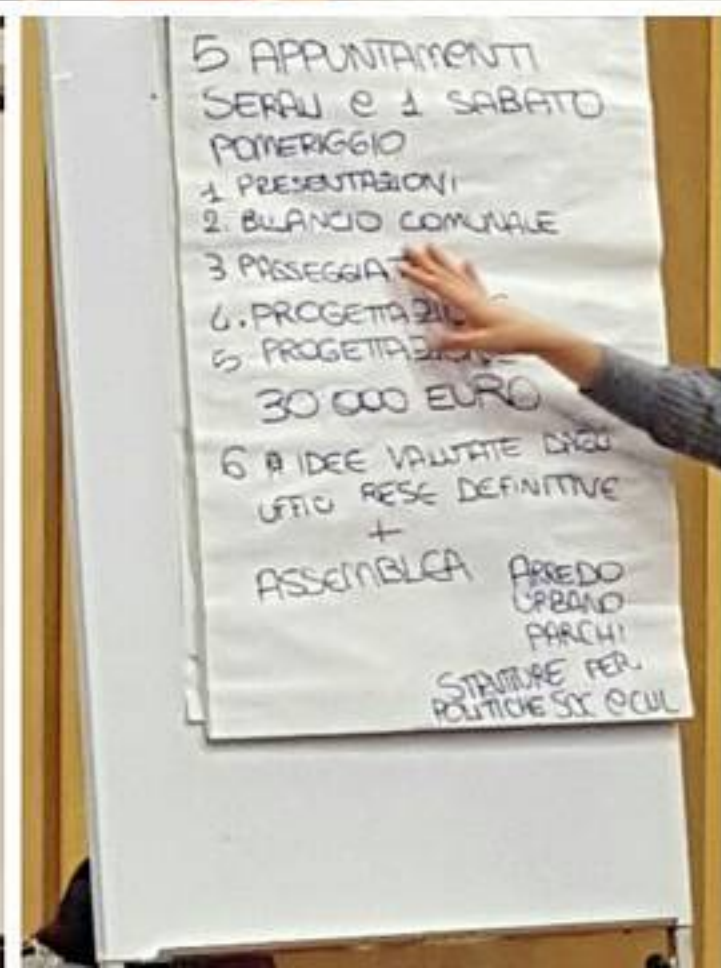 5 APPUNTAMENTI
SERALI e 1 SABATO
POMERIGGIO
1 PRESENTAZIONI
2. BILANCIO COMUNALE
3 PASSEGGIAT
4. PROGETTAZIONE
5 PROGETTAZIONE
30 000 EURO
6 IDEE VALUTATE DAGLI
UFFICI RESE DEFINITIVE
+
ASSEMBLEA
ARREDO
URBANO
PARCHI
STRUTTURE PER
POLITICHE SOC e CUL